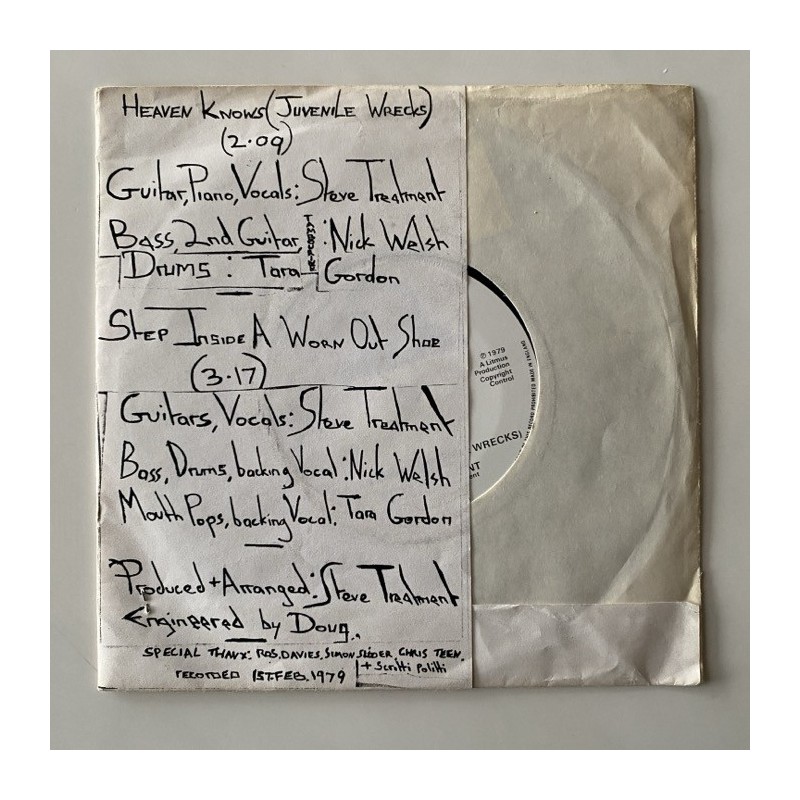 HEAVEN KNOWS (JUVENILE WRECKS)
(2·09)
Guitar, Piano, Vocals: Steve Treatment
Bass, 2nd Guitar, TAMBOURINE: Nick Welsh
Drums: Tara Gordon
STEP INSIDE A WORN OUT SHOE
(3·17)
Guitars, Vocals: Steve Treatment
Bass, Drums, backing Vocal: Nick Welsh
Mouth Pops, backing Vocal: Tara Gordon
Produced + Arranged: Steve Treatment
Engineered by Doug.
SPECIAL THANX: ROS, DAVIES, SIMON SLIDER, CHRIS TEEN,
+ Scritti Politti
RECORDED 1ST. FEB. 1979
℗ 1979
A Litmus
Production
Copyright
Control
WRECKS)
NT
MADE IN ENGLAND